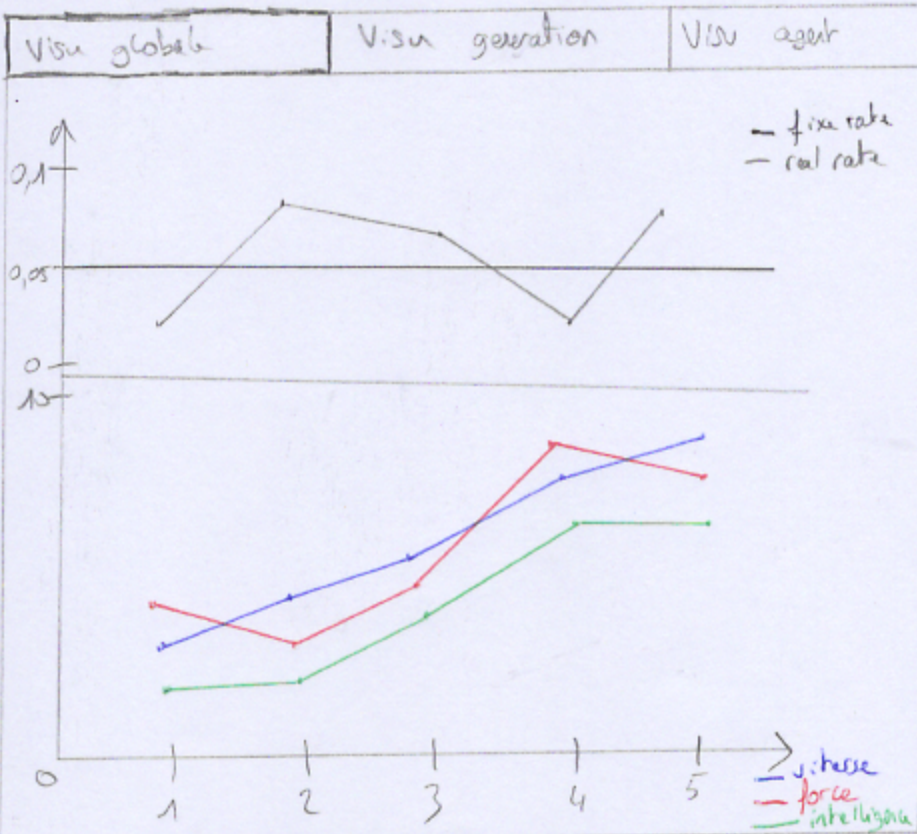 Visu globale
Visu generation
Visu agent
fixe rate
real rate
0,1
0,05
0
10
0
1
2
3
4
5
vitesse
force
intelligence